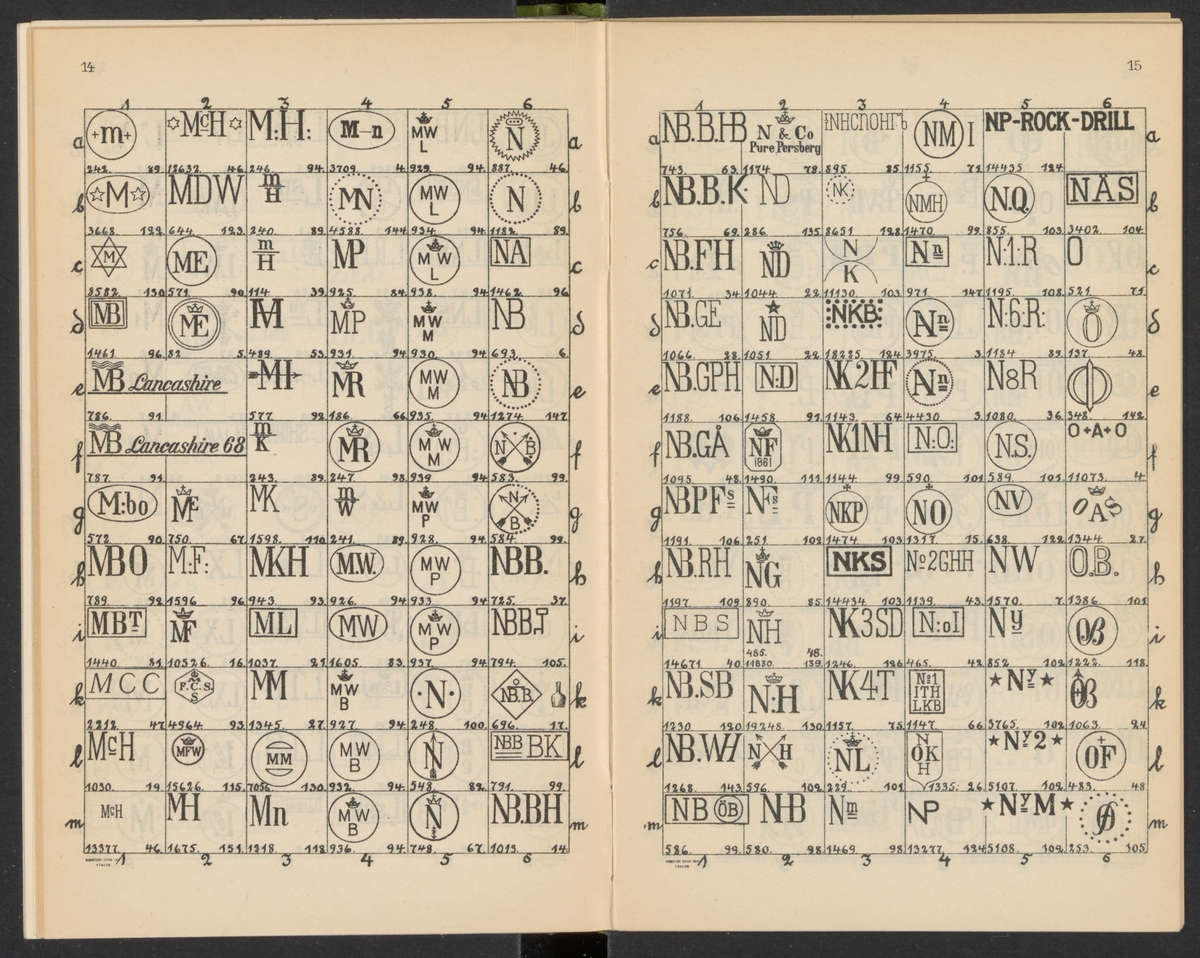 14
1 2 3 4 5 6
a +m+ ☆McH☆ M:H: M-n MW L N a
242. 89. 12632. 46. 246. 94. 3709. 4. 929. 94. 887. 46.
b ☆M☆ MDW m H MN MW L N b
3668. 122. 644. 123. 240. 89. 4588. 144. 934. 94. 1182. 89.
c M ME m H MP MW L NA c
8582. 130. 571. 90. 114. 39. 925. 84. 938. 94. 1462. 96.
d MB ME M MP MW M NB d
1461. 96. 82. 5. 489. 53. 931. 94. 930. 94. 693. 6.
e MB Lancashire MI MR MW M NB e
786. 91. 577. 98. 186. 66. 935. 94. 1274. 147.
f MB Lancashire 68 m K MR MW M N B f
787. 91. 243. 89. 247. 98. 939. 94. 583. 99.
g M:bo ME MK m W MW P N B g
572. 90. 750. 67. 1598. 110. 241. 89. 928. 94. 584. 99.
h MBO M:F: MKH M.W. MW P NBB. h
789. 92. 1596. 96. 943. 93. 926. 94. 933. 94. 725. 37.
i MBT MF ML MW MW P NBB.T i
1440. 81. 10526. 16. 1037. 21. 1605. 83. 937. 94. 794. 105.
k MCC F.C.S. S MM MW B ·N· N.B.B. k
2212. 47. 4964. 93. 1345. 27. 927. 94. 248. 100. 696. 17.
l McH MFW MM MW B N NBB BK l
1030. 19. 15626. 115. 7056. 130. 932. 94. 548. 82. 791. 99.
m McH MH Mn MW B N NB.BH m
13377. 46. 1675. 151. 1218. 118. 936. 94. 748. 67. 1013. 14.
1 2 3 4 5 6
15
1 2 3 4 5 6
a NB.B.HB N & Co Pure Persberg NM I NP-ROCK-DRILL a
743. 63. 1174. 78. 895. 85. 1155. 71. 14435. 124.
b NB.B.K ND NK NMH N.Q. NÄS b
756. 69. 286. 135. 8651. 128. 1470. 99. 855. 103. 3402. 104.
c NB.FH ND N K Nn N:1:R O c
1071. 34. 1044. 22. 11130. 103. 971. 147. 1195. 108. 521. 71.
d NB.GE ND NKB An N:6:R: O d
1066. 28. 1051. 22. 18225. 124. 3975. 3. 1184. 89. 137. 48.
e NB.GPH N:D NK2HF An N8R e
1188. 106. 1458. 91. 1143. 64. 4430. 3. 1080. 36. 348. 142.
f NB.GÅ NF 1881 NK1NH N:O: N.S. O+A+O f
1095. 48. 1490. 111. 1144. 99. 590. 101. 589. 101. 11073. 4.
g NBPFs NFs NKP NO NV OAS g
1191. 106. 251. 102. 1474. 103. 1317. 15. 638. 122. 1344. 27.
h NB.RH NG NKS No2GHH NW O.B. h
1197. 109. 890. 85. 14434. 103. 1139. 43. 1570. 7. 1386. 101.
i NBS NH NK3SD N:oI Ny OB i
485. 48.
14671. 40. 11830. 139. 1246. 126. 465. 42. 852. 102. 1222. 118.
k NB.SB N:H NK4T No1 ITH LKB ★Ny★ OB k
1230. 120. 19248. 130. 1157. 75. 1147. 66. 3765. 102. 1063. 24.
l NB.WH N H NL N OK H ★Ny2★ OF l
1268. 143. 596. 102. 229. 101. 1335. 26. 5107. 102. 483. 48.
m NB ÖB NHB Nm NP ★NyM★ m
586. 99. 580. 98. 1469. 98. 13277. 124. 5108. 109. 253. 105.
1 2 3 4 5 6